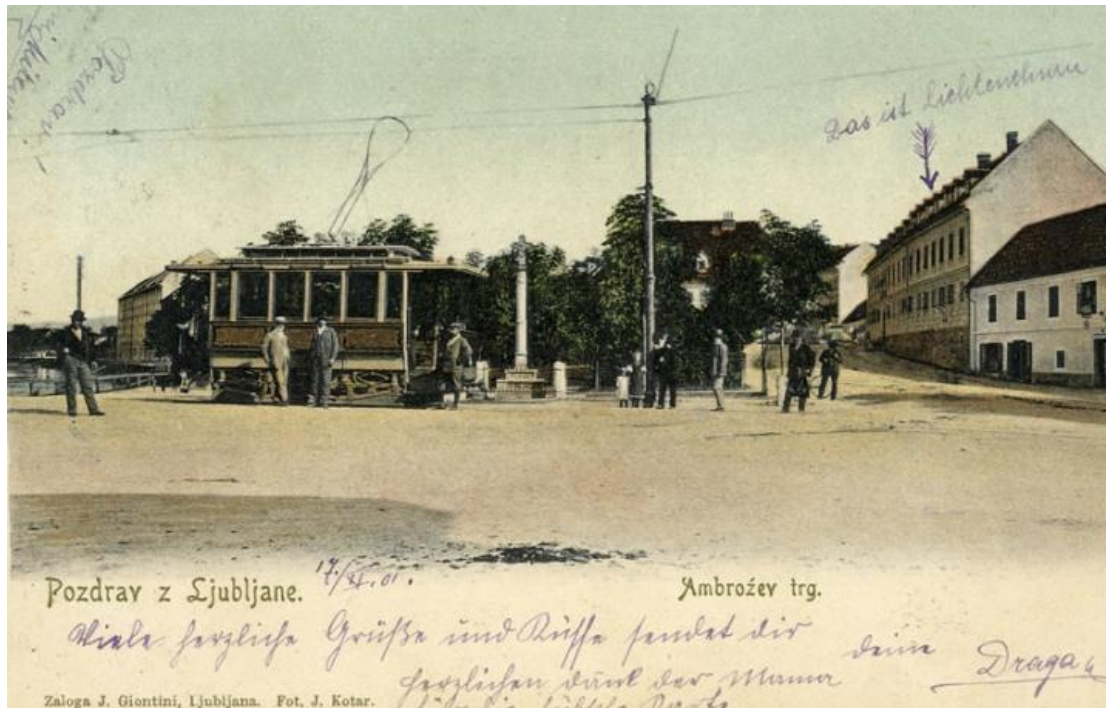 Pozdrav!
Das ist Lichtenthurn
Pozdrav z Ljubljane.
17./XI. 01.
Ambrožev trg.
Viele herzliche Grüße und Küsse sendet dir
deine Draga
herzlichen Dank der Mama
Karte
Zaloga J. Giontini, Ljubljana. Fot. J. Kotar.